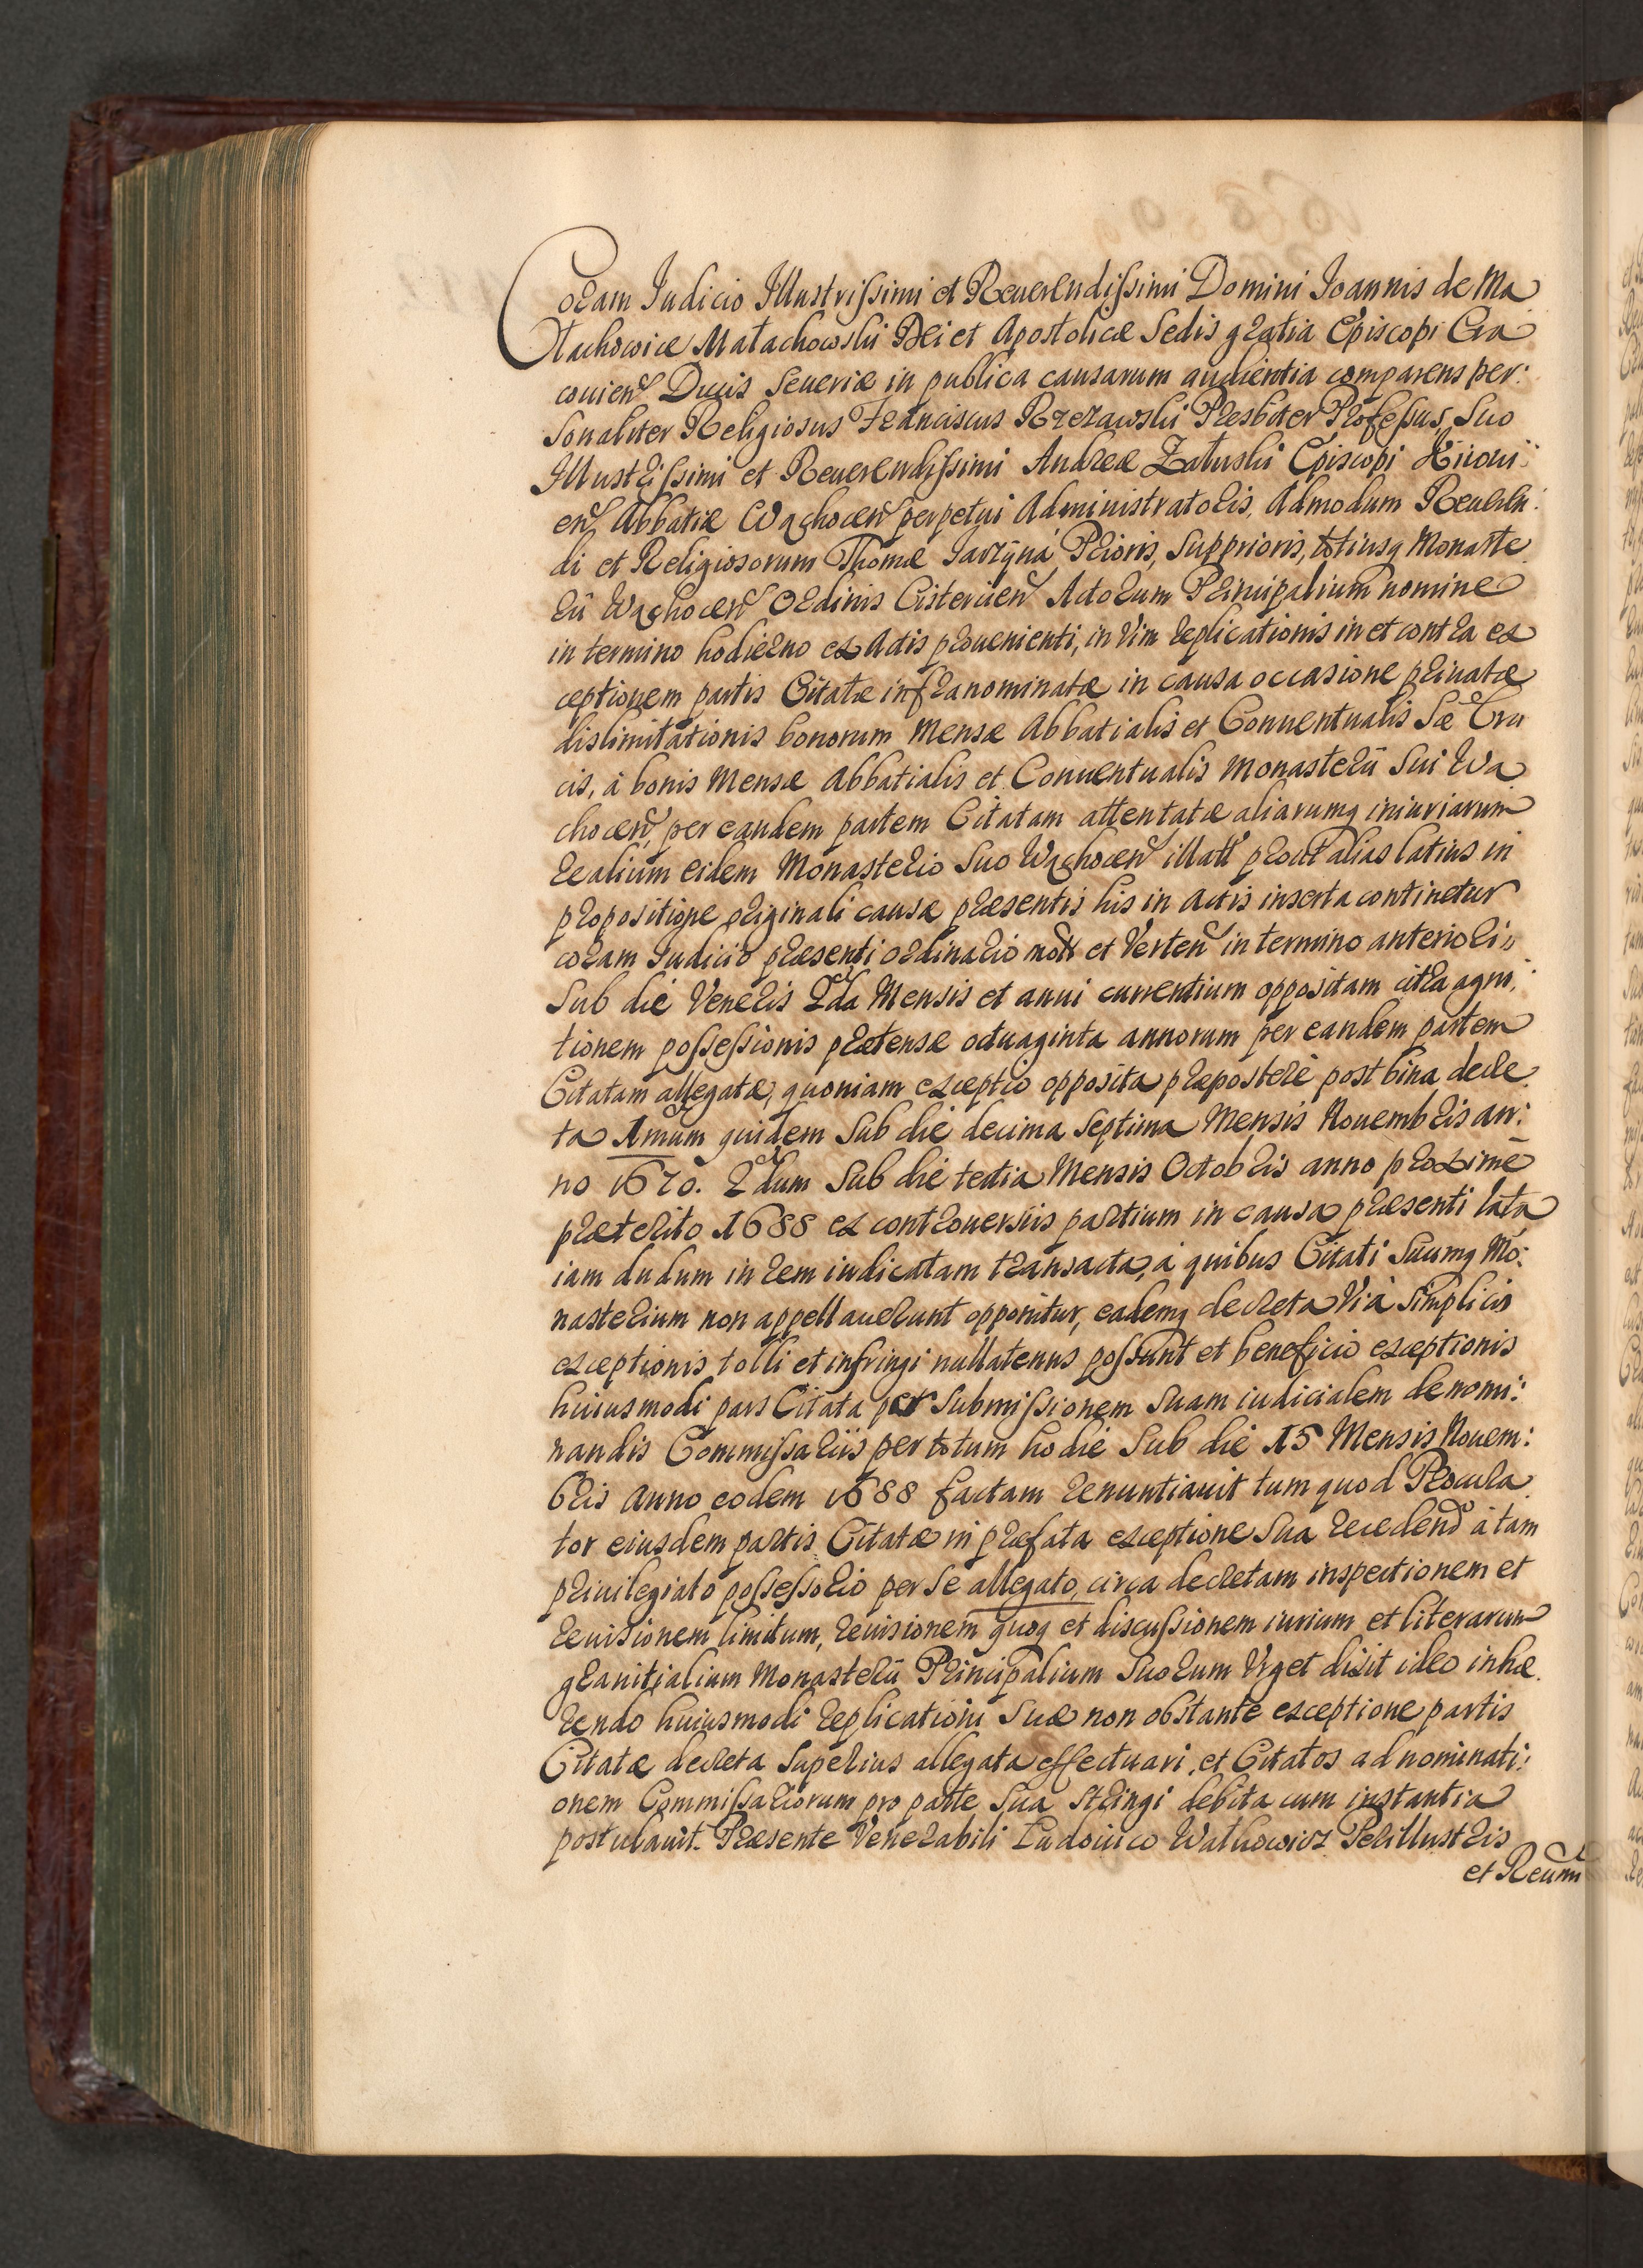 Coram Iudicio Illustrissimi et Reuerendissimi Domini Ioannis de Ma
łachowice Małachowski Dei et Apostolicæ Sedis gratia Episcopi Cra
couien Ducis Seueriæ in publica causarum audientia comparens per:
sonaliter Religiosus Franciscus Rzezawski Presbiter Professus, suo
Illustrissimi et Reuerendissimi Andreæ Załuski Episcopi Kiioui:
en Abbatiæ Wąchocen perpetui Administratoris, Admodum Reueren:
di et Religiosorum Thomæ Iarzyna Prioris, Supprioris, totiusq Monaste
rii Wąchocen Ordinis Cistercien Actorum Principalium nomine
in termino hodierno ex Actis prouenienti, in vim replicationis in et contra ex
ceptionem partis Citatæ infranominatæ in causa occasione priuatæ
dislimitationis bonorum Mensæ Abbatialis et Conuentualis Sæ Cru
cis, à bonis Mensæ Abbatialis et Conuentualis Monasterii sui Wą
chocen, per eandem partem Citatam attentatæ aliarumq iniuriarum
realium eidem Monasterio suo Wąchocen illatt prout alias latius in
propositione originali causæ præsentis his in Actis inserta continetur
coram Iudicio præsenti ordinario mott et Verten in termino anteriori,,
Sub die Veneris 2da Mensis et anni currentium oppositam citra agni:
tionem possessionis prætensæ octuaginta annorum per eandem partem
Citatam allegatæ, quoniam exceptio opposita præposterè post bina decre
ta 1mum quidem Sub die decima septima Mensis Nouembris an:
no 1670. 2dum Sub die tertia Mensis Octobris anno proximè
præterito 1688 ex controuersiis partium in causa præsenti lata
iam dudum in rem iudicatam transacta, à quibus Citati suumq Mo:
nasterium non appellauerunt opponitur, eademq decreta Vià simplicis
exceptionis tolli et infringi nullatenus possunt et beneficio exceptionis
huiusmodi pars Citata per submissionem suam iudicialem denomi:
nandis Commissariis per totum hodie Sub die 15 Mensis Nouem:
bris Anno eodem 1688 factam renuntiauit tum quod Procura
tor eiusdem partis Citatæ in præfata exceptione sua recedend à tam
priuilegiato possessorio per se allegato, circa decretam inspectionem et
reuisionem limitum, reuisionem quoq et discussionem iurium et literarum
granitialium Monasterii Principalium suorum Vrget dixit ideo inhæ
rendo huiusmodi replicationi suæ non obstante exceptione partis
Citatæ decreta superius allegata effectuari, et Citatos ad nominati:
onem Commissariorum pro parte sua stringi debita cum instantia
postulauit. Præsente Venerabili Ludouico Wałkowicz Perillustris
et Reuñ